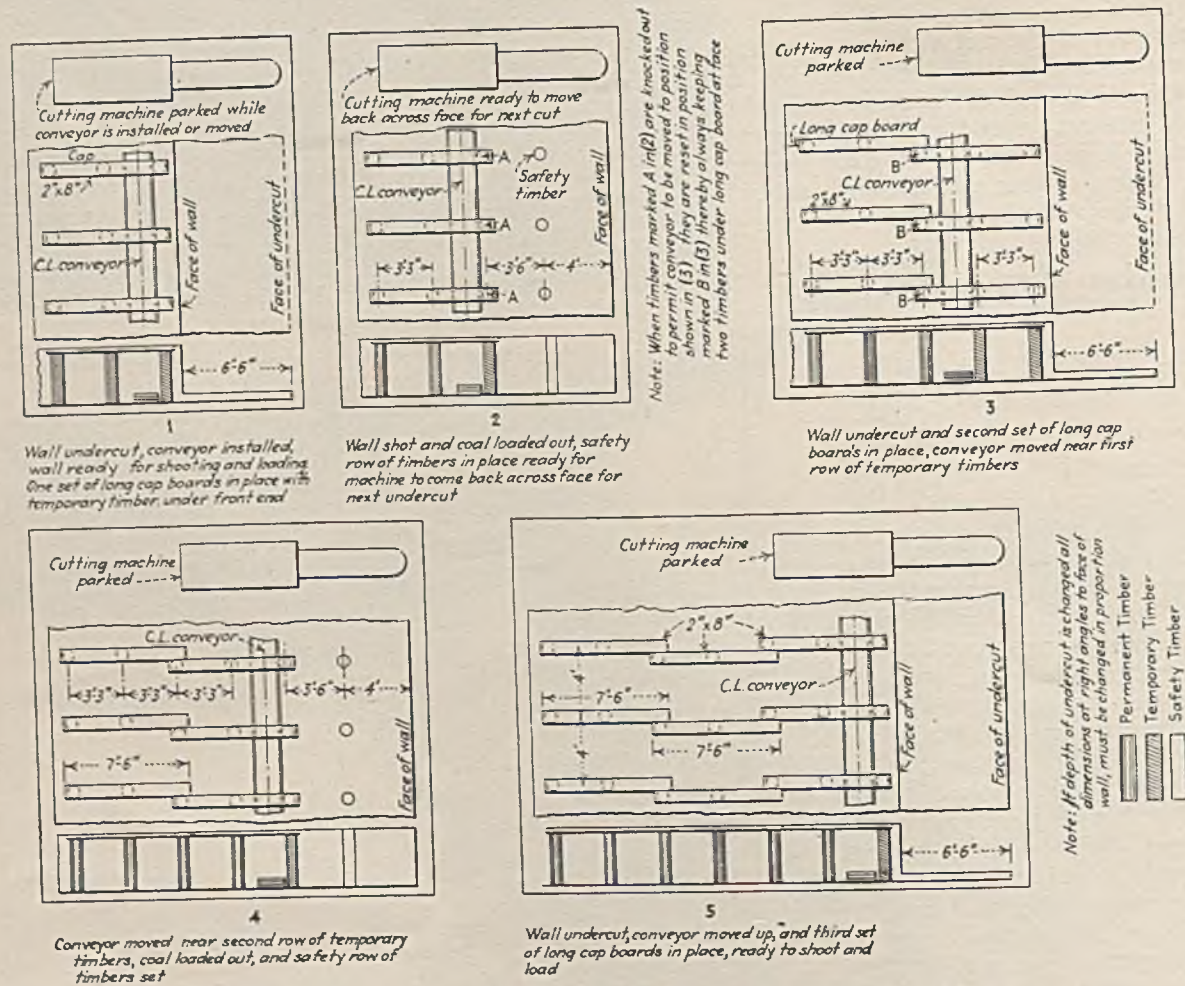 Cutting machine parked while
conveyor is installed or moved
Cap
2"x8"
C.L.conveyor
Face of wall
Face of undercut
6'-6"
1
Wall undercut, conveyor installed,
wall ready for shooting and loading.
One set of long cap boards in place with
temporary timber under front end
Cutting machine ready to move
back across face for next cut
A
Safety
timber
C.L.conveyor
A
Face of wall
3'3"
3'6"
4'
A
2
Wall shot and coal loaded out, safety
row of timbers in place ready for
machine to come back across face for
next undercut
Note: When timbers marked A in(2) are knocked out
to permit conveyor to be moved to position
shown in (3) they are reset in position
marked B in(3) thereby always keeping
two timbers under long cap board at face
Cutting machine
parked
Long cap board
B
C.L.conveyor
2"x8"
B
3'3"
3'3"
3'3"
B
Face of wall
Face of undercut
6'-6"
3
Wall undercut and second set of long cap
boards in place, conveyor moved near first
row of temporary timbers
Cutting machine
parked
C.L.conveyor
3'3"
3'3"
3'3"
3'6"
4'
7'-6"
Face of wall
4
Conveyor moved near second row of temporary
timbers, coal loaded out, and safety row of
timbers set
Cutting machine
parked
2"x8"
4'
C.L.conveyor
7'-6"
4'
7'-6"
Face of wall
Face of undercut
6'-6"
5
Wall undercut, conveyor moved up, and third set
of long cap boards in place, ready to shoot and
load
Note: If depth of undercut is changed all
dimensions at right angles to face of
wall, must be changed in proportion
Permanent Timber
Temporary Timber
Safety Timber